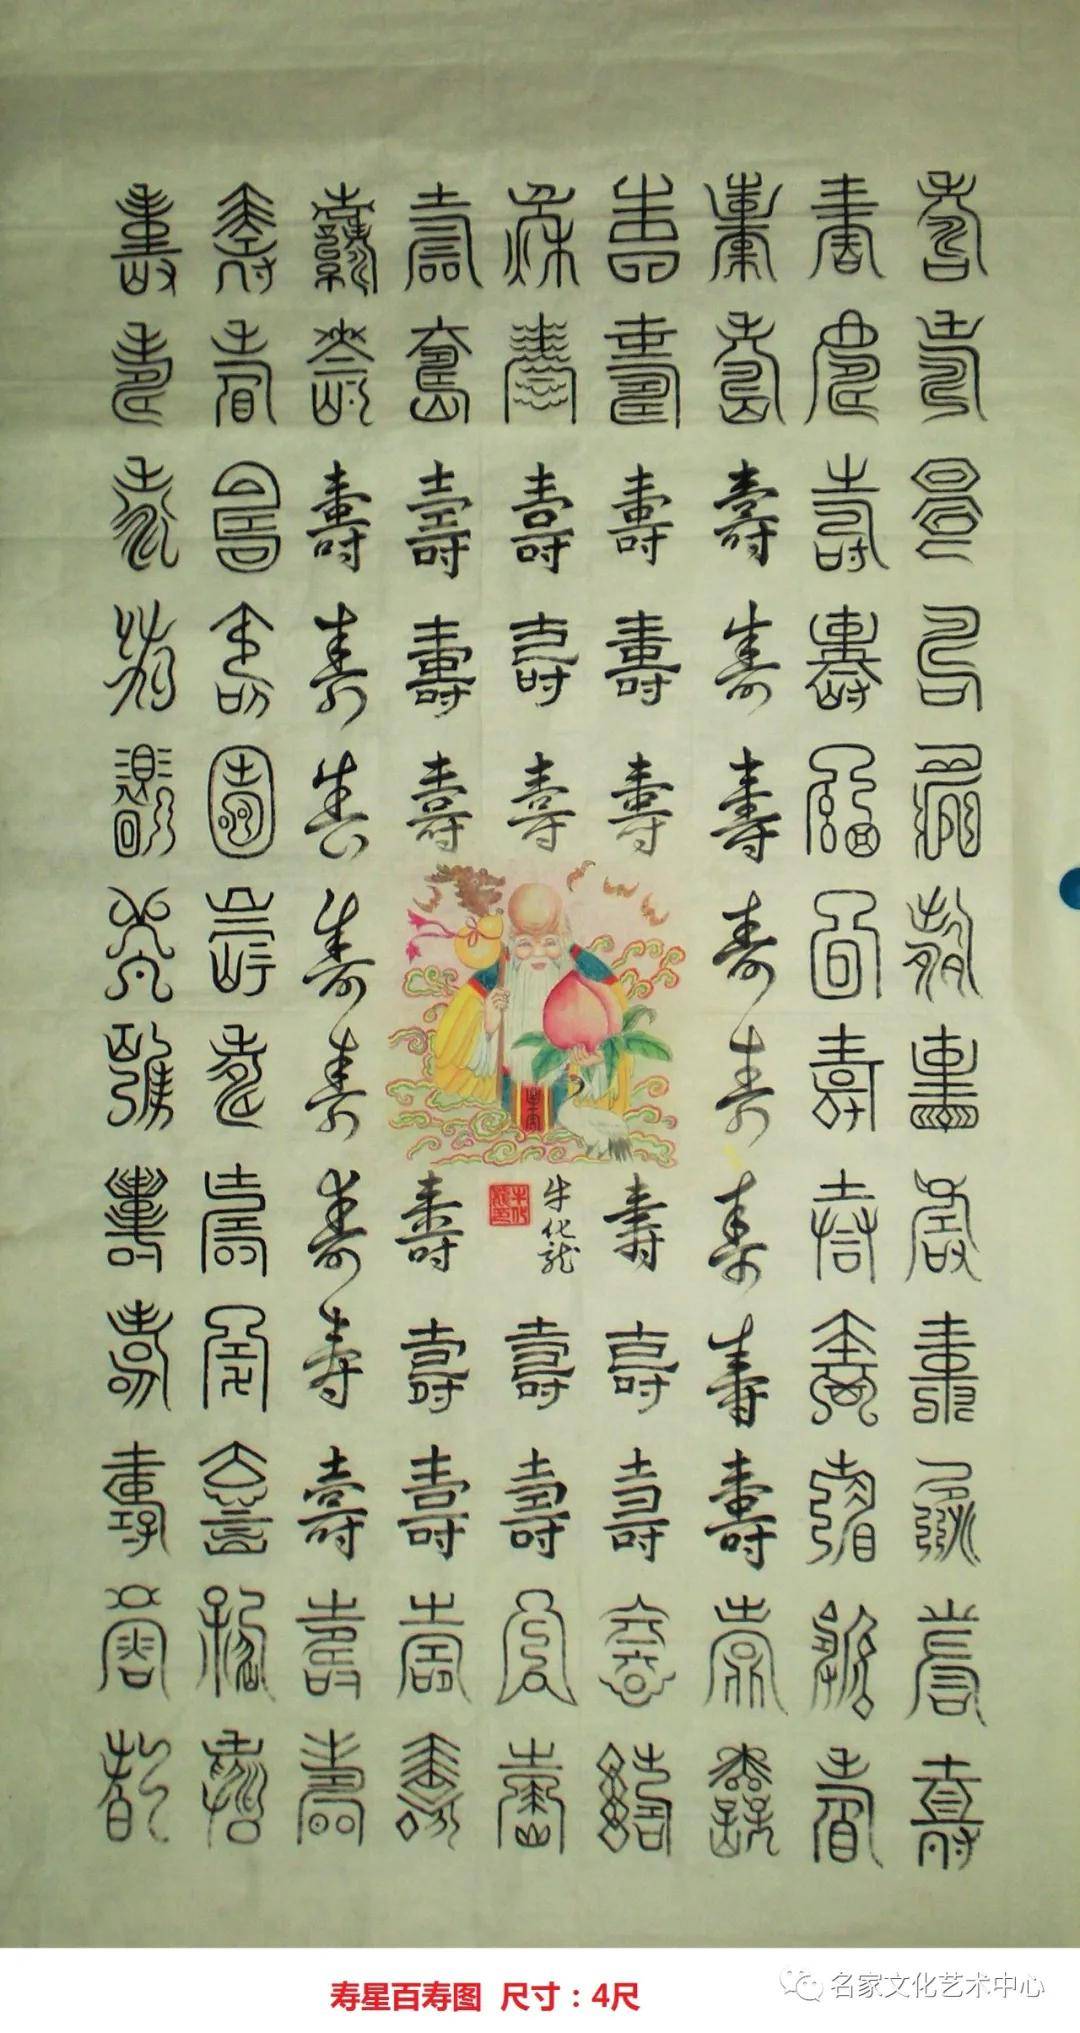 壽壽壽壽壽壽壽壽壽
壽壽壽壽壽壽壽壽壽
壽壽壽壽壽壽壽壽壽
壽壽壽壽壽壽壽壽壽
壽壽壽壽壽壽壽壽壽
壽壽壽壽壽壽
壽壽壽壽壽壽
壽壽壽壽壽壽壽壽
壽壽壽壽壽壽壽壽壽
壽壽壽壽壽壽壽壽壽
壽壽壽壽壽壽壽壽壽
壽壽壽壽壽壽壽壽壽
牛化龍
寿星百寿图 尺寸：4尺
名家文化艺术中心